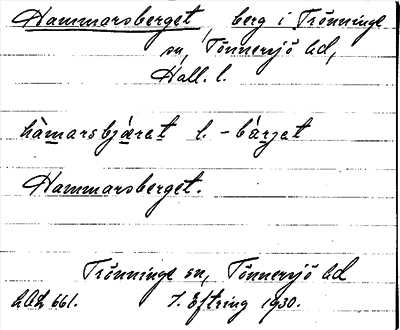 Hammarsberget, berg i Trönninge
sn, Tönnersjö hd,
Hall. l.
hàmarsbjæ̀rət l. -bàrjət
Hammarsberget.
Trönninge sn, Tönnersjö hd
LAL 661. J. Eftring 1930.